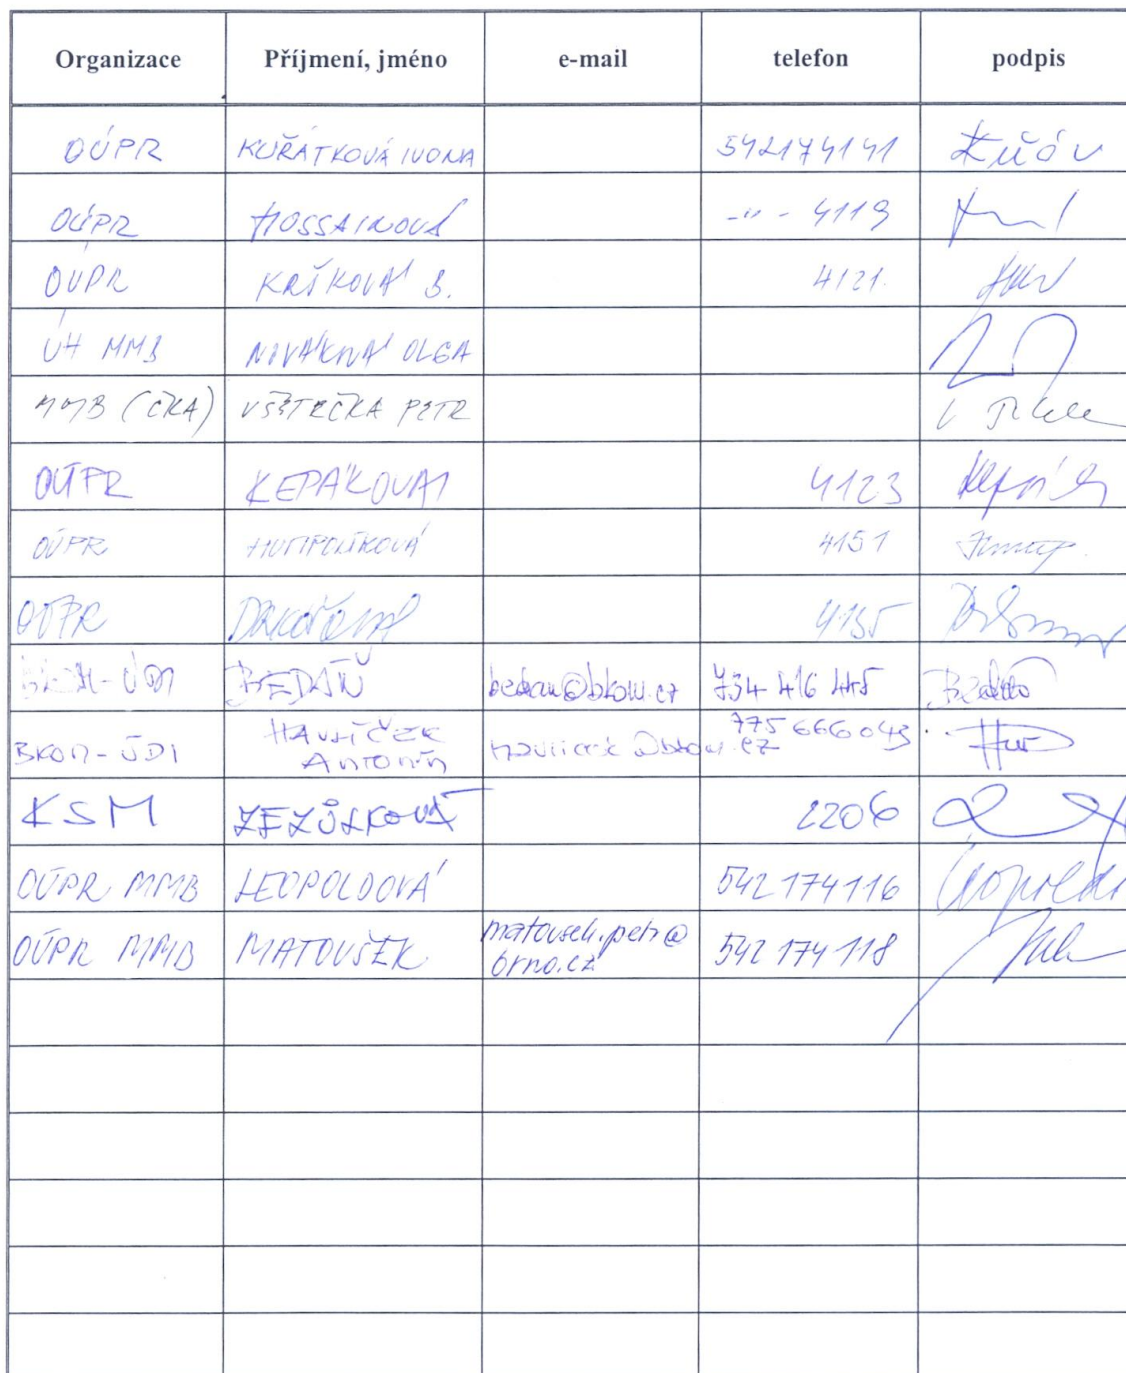 Organizace Příjmení, jméno e-mail telefon podpis
OÚPR KUŘÁTKOVÁ IVONA 542174141
OÚPR HOSSAINOVÁ -"- 4119
OÚPR KRŠKOVÁ B. 4121.
ÚH MMB NOVÁKOVÁ OLGA
MMB (ČKA) VŠETEČKA PETR
OÚPR KEPÁKOVÁ 4123
OÚPR HUMPOLÍKOVÁ 4151
OÚPR 4135
BKOM-ÚDI BEDÁŇ bedan@bkom.cz 734 416 445
BKOM-ÚDI HAVLÍČEK ANTONÍN havlicek@bkom.cz 775 666 043
KSM ZEZŮLKOVÁ 2206
OÚPR MMB LEOPOLDOVÁ 542 174116
OÚPR MMB MATOUŠEK matousek.petr@brno.cz 542 174 118